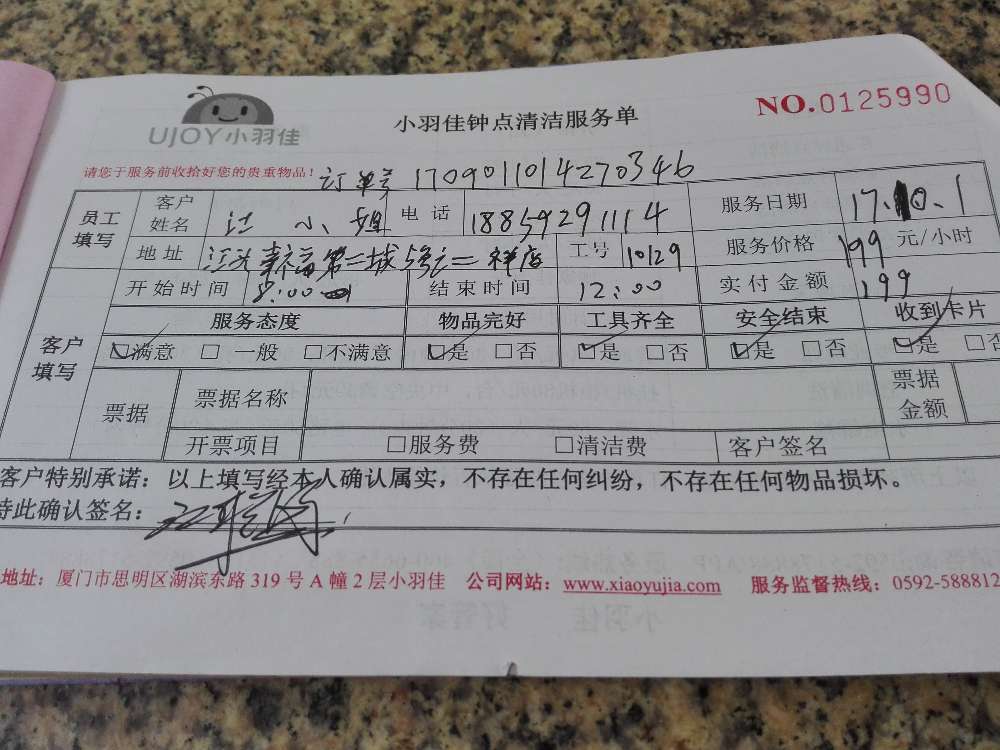 UJOY小羽佳
小羽佳钟点清洁服务单
NO.0125990
请您于服务前收拾好您的贵重物品！
订单号 1709011014270346
员工填写
客户姓名 江小姐 电话 18859291114 服务日期 17.10.1
地址 江头 第二城 二 祥店 工号 10129 服务价格 199 元/小时
客户填写
开始时间 8:00 结束时间 12:00 实付金额 199
服务态度 物品完好 工具齐全 安全结束 收到卡片
☑满意 □一般 □不满意 ☑是 □否 ☑是 □否 ☑是 □否 ☑是 □否
票据 票据名称 票据金额
开票项目 □服务费 □清洁费 客户签名
客户特别承诺：以上填写经本人确认属实，不存在任何纠纷，不存在任何物品损坏。
特此确认签名：
地址：厦门市思明区湖滨东路 319 号 A 幢 2 层小羽佳 公司网站：www.xiaoyujia.com 服务监督热线：0592-588812